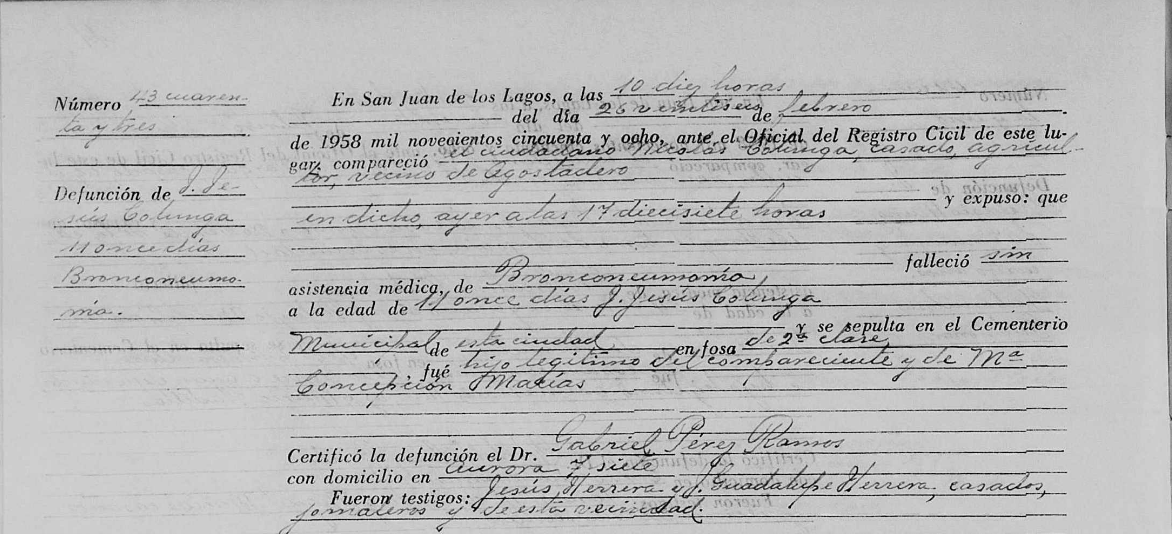 Número 43 cuaren-
ta y tres
Defunción de J. Je-
sús Colunga
11 once días
Bronconeumo-
nía.
En San Juan de los Lagos, a las 10 diez horas
del día 26 veintiseis de febrero
de 1958 mil novecientos cincuenta y ocho, ante el Oficial del Registro Cicil de este lu-
gar compareció el ciudadano Nicolás Colunga, casado, agricul-
tor, vecino de Agostadero
y expuso: que
en dicho, ayer a las 17 diecisiete horas
falleció sin
asistencia médica, de Bronconeumonía
a la edad de 11 once días J. Jesús Colunga
y se sepulta en el Cementerio
Municipal de esta ciudad en fosa de 2ª clase
fué hijo legítimo del compareciente y de Mª
Concepción Macías
Certificó la defunción el Dr. Gabriel Pérez Ramos
con domicilio en Aurora 7 siete
Fueron testigos: Jesús Herrera y J. Guadalupe Herrera, casados,
jornaleros y de esta vecindad.